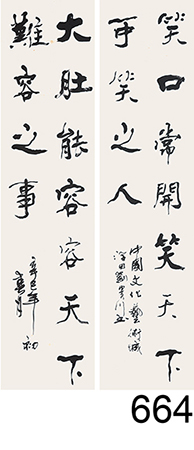 笑口常開笑天下
可笑之人
中國文化藝術城
大肚能容容天下
難容之事
辛巳年初
春月
664